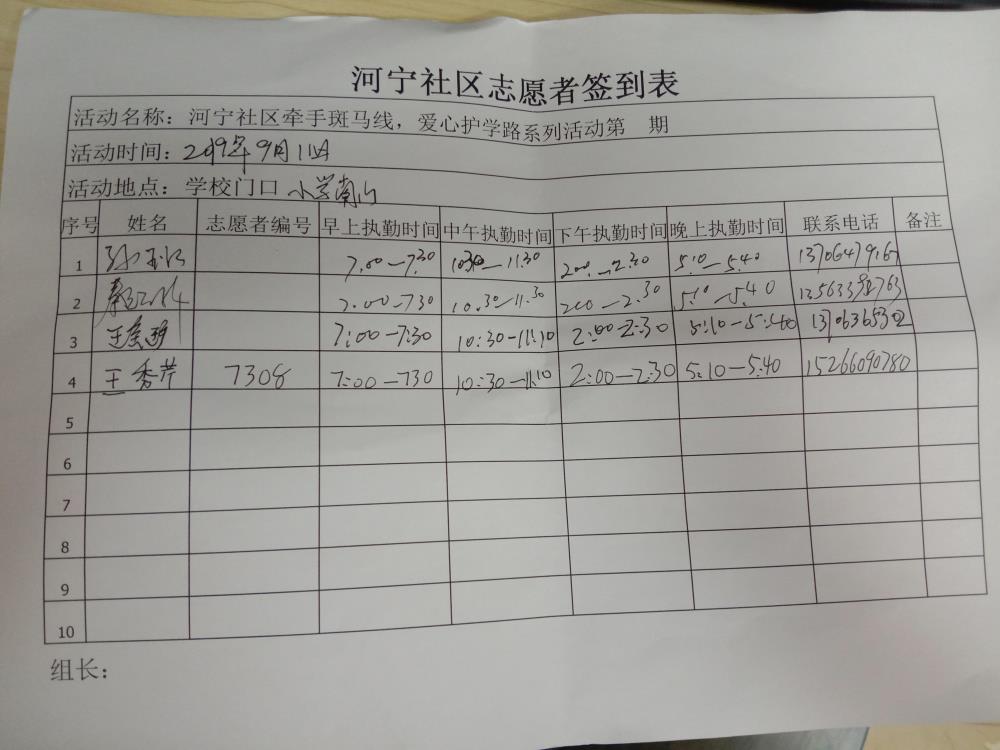 河宁社区志愿者签到表
活动名称：河宁社区牵手斑马线，爱心护学路系列活动第 期
活动时间：2019年9月11日
活动地点：学校门口 小学南门
序号 姓名 志愿者编号 早上执勤时间 中午执勤时间 下午执勤时间 晚上执勤时间 联系电话 备注
1 7.00—7.30 10.30—11.30 2.00—2.30 5.10—5.40
2 7.00—730 10.30—11.30 200—2.30 5.10—5.40
3 7:00—7:30 10:30—11:10 2:00—2:30 5:10—5:40
4 王秀芹 7308 7:00—730 10:30—11:10 2:00—2:30 5:10—5:40 15266090780
5
6
7
8
9
10
组长：